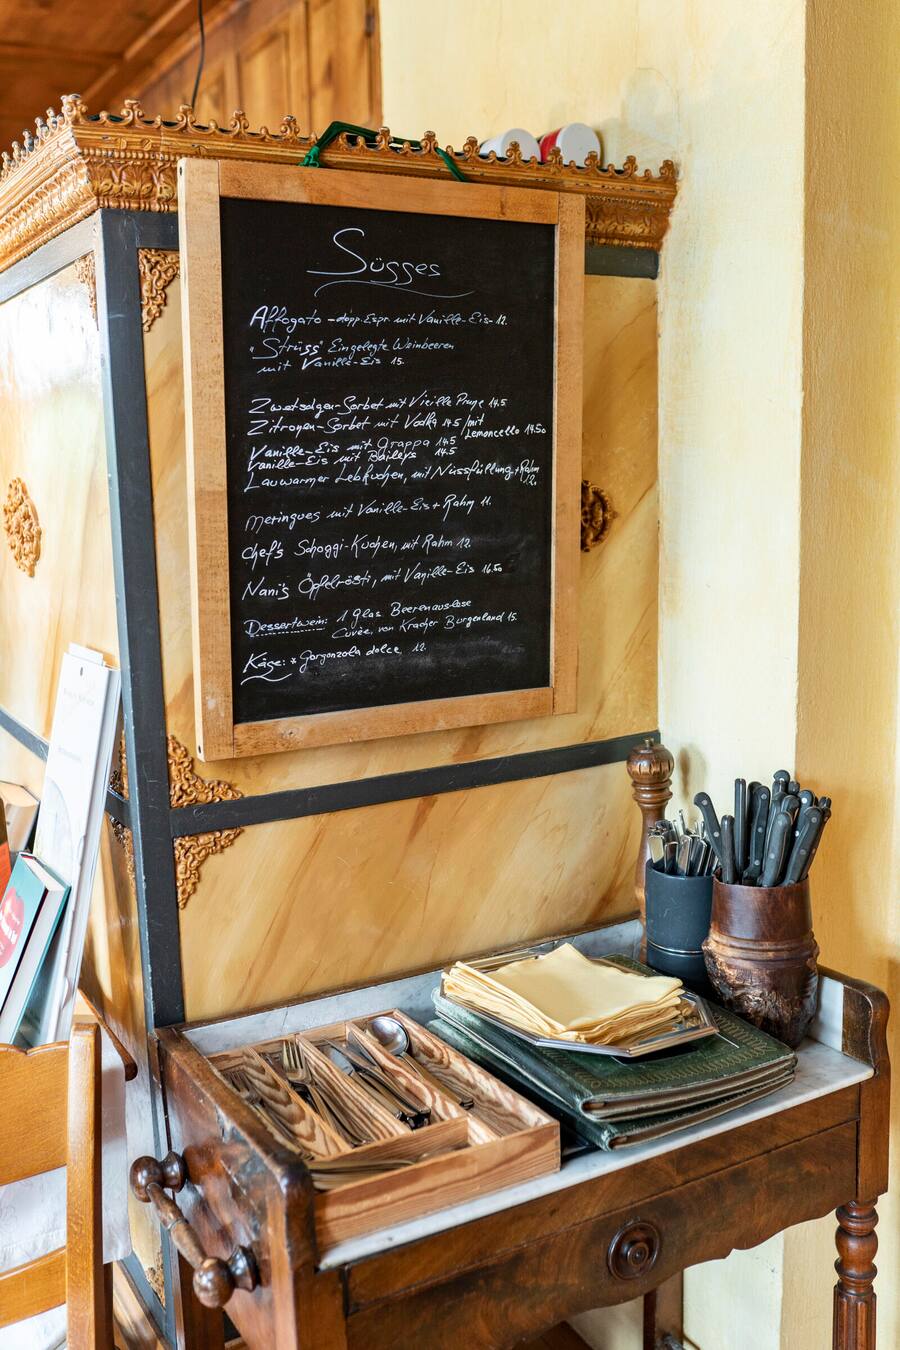 Süsses
Affogato - dopp. Espr. mit Vanille-Eis - 12.
"Strüss" Eingelegte Weinbeeren
mit Vanille-Eis 15.
Zwetschgen-Sorbet mit Vieille Prune 14.5
Zitronen-Sorbet mit Vodka 14.5 / mit
Lemoncello 14.50
Vanille-Eis mit Grappa 14.5
Vanille-Eis mit Baileys 14.5
Lauwarmer Lebkuchen, mit Nussfüllung + Rahm
12.
Meringues mit Vanille-Eis + Rahm 11.
Chef's Schoggi-Kuchen, mit Rahm 12.
Nani's Öpfelrösti, mit Vanille-Eis 16.50
Dessertwein: 1 Glas Beerenauslese
Cuvée, von Kracher Burgenland 15.
Käse: * Gorgonzola dolce 12.